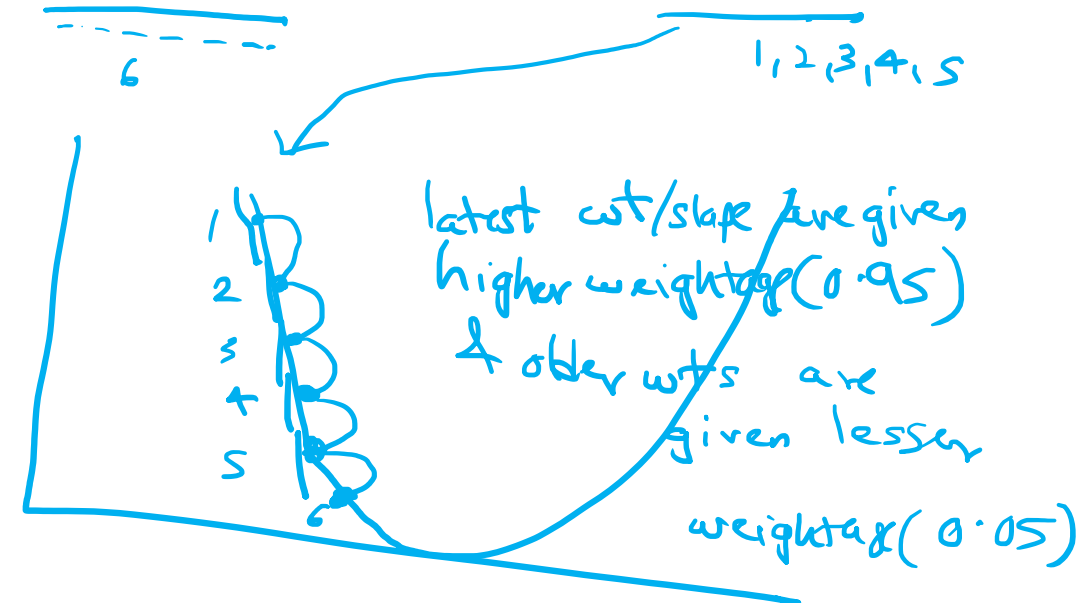 6
1, 2, 3, 4, 5
1
2
3
4
5
6
latest wt/slope are given
higher weightage (0.95)
& older wts are
given lesser
weightage (0.05)